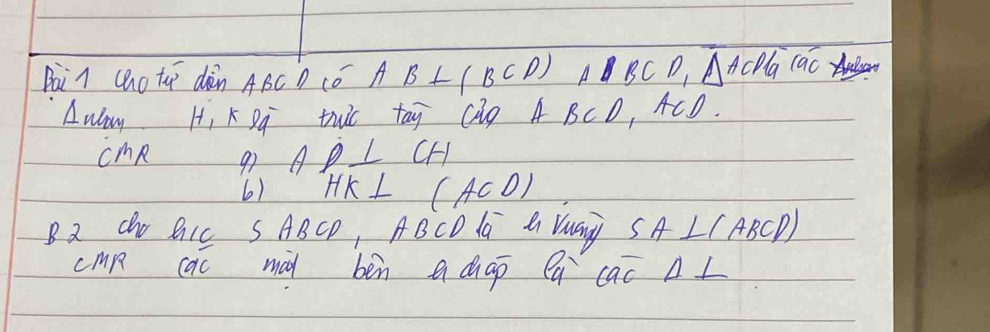 Bài 1 cho tứ diện ABCD có AB ⊥ (BCD) Δ BCD, Δ ACD là các
Δ nhọn H, K là trực tâm của Δ BCD, ACD.
CMR a) AD ⊥ CH
b) HK ⊥ (ACD)
B2 cho h/c S ABCD, ABCD là h vuông SA ⊥ (ABCD)
CMR các mặt bên h chóp là các Δ ⊥